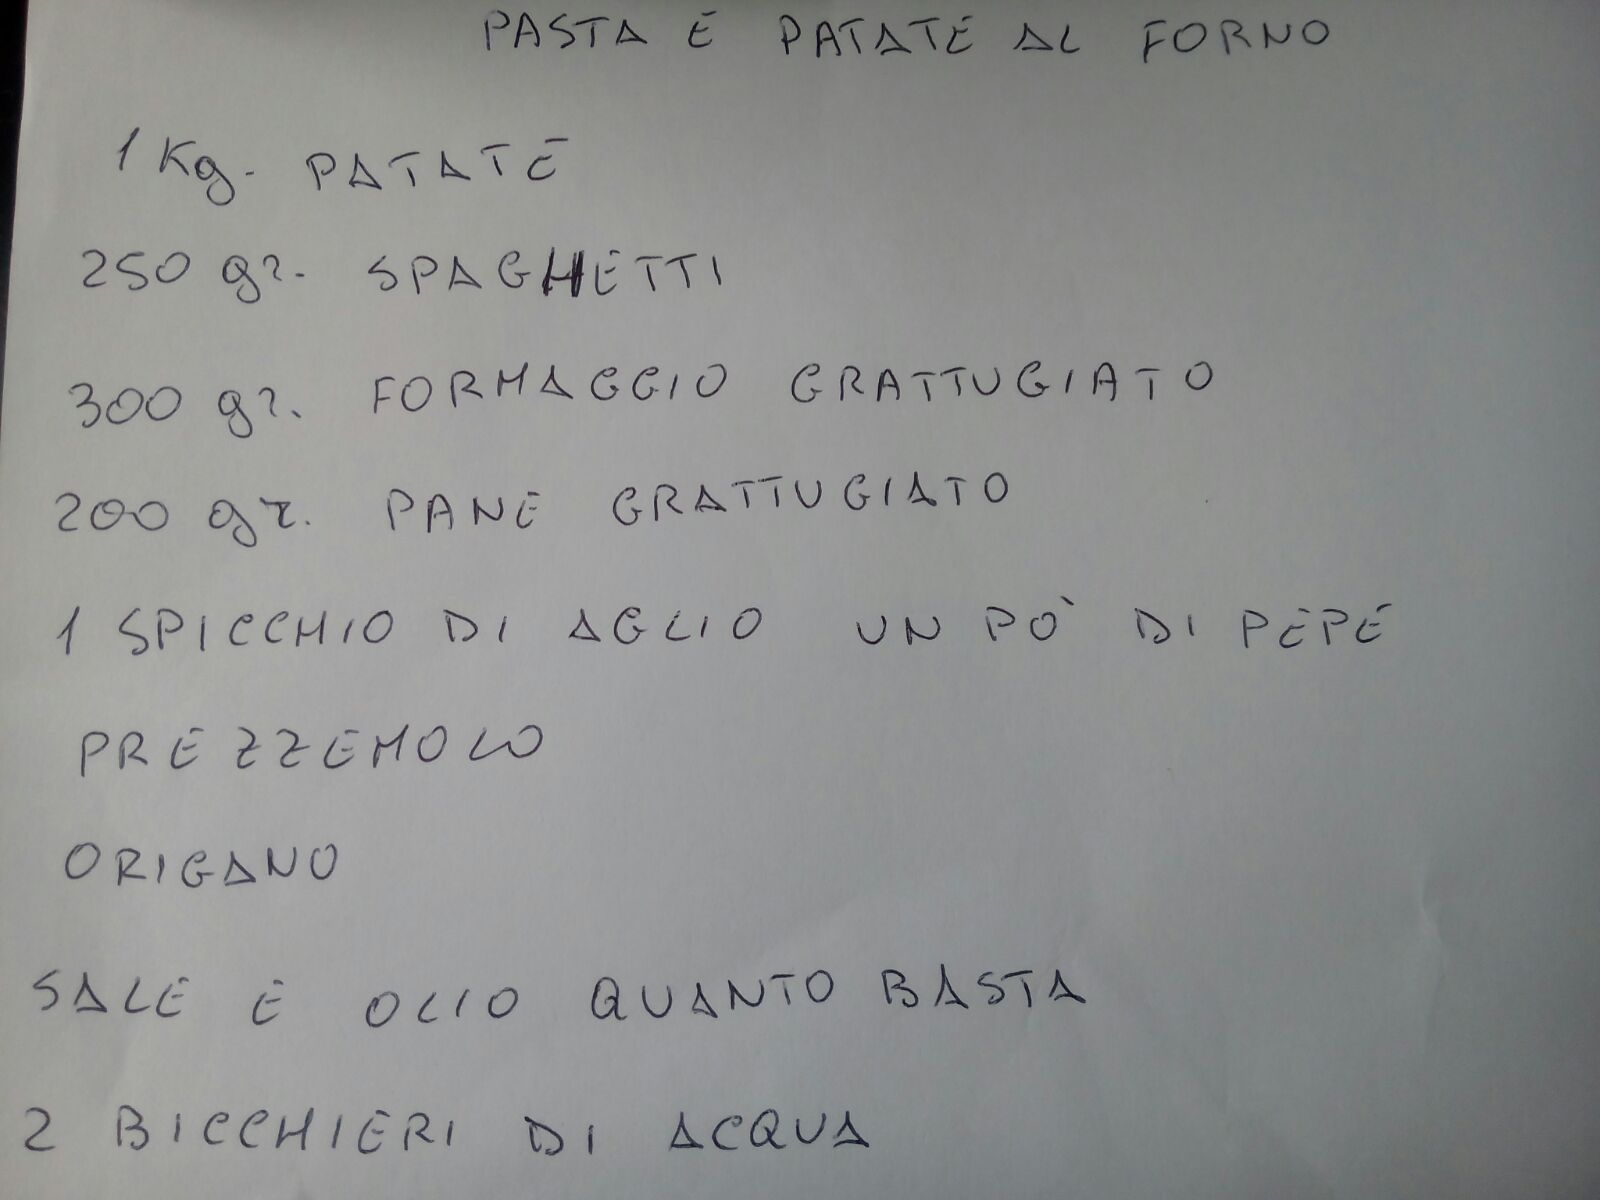 PASTA E PATATE AL FORNO
1 Kg. PATATE
250 gr. SPAGHETTI
300 gr. FORMAGGIO GRATTUGIATO
200 gr. PANE GRATTUGIATO
1 SPICCHIO DI AGLIO UN PO' DI PEPE
PREZZEMOLO
ORIGANO
SALE E OLIO QUANTO BASTA
2 BICCHIERI DI ACQUA